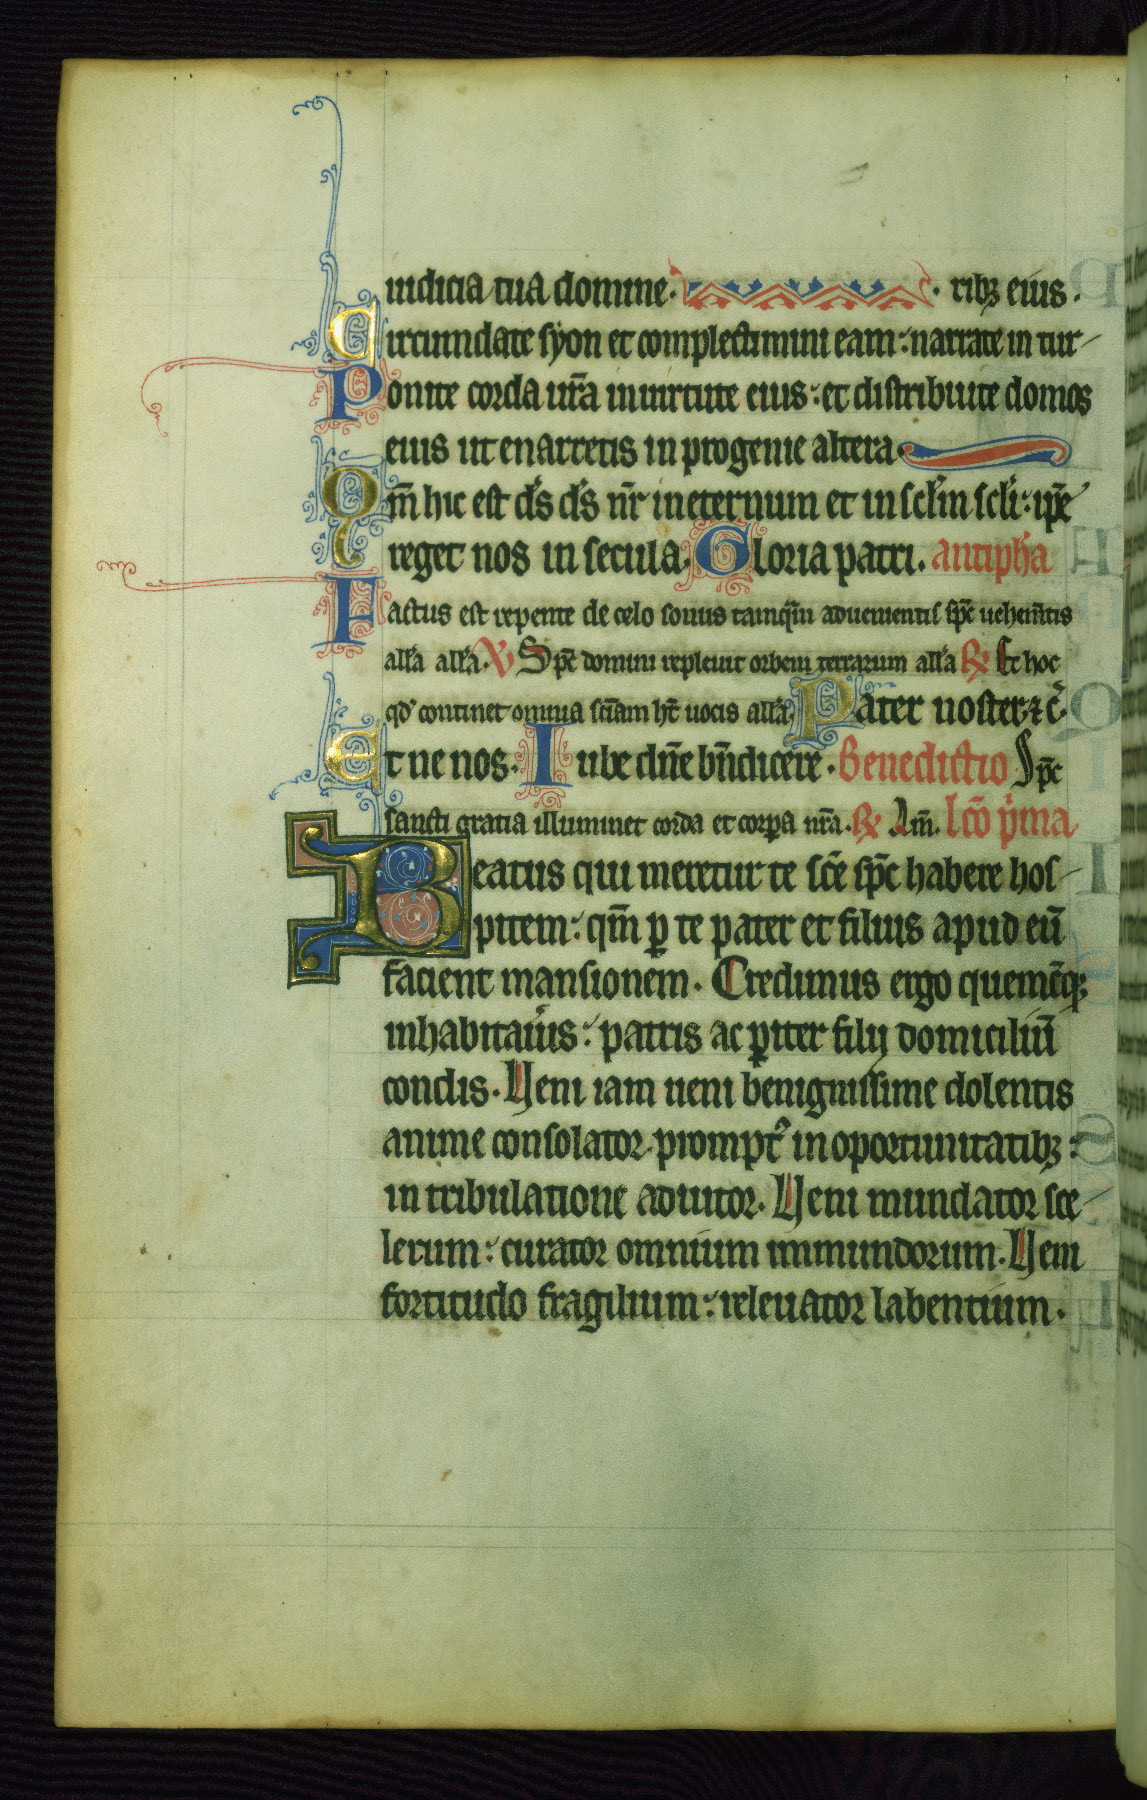 iudicia tua domine. ribꝫ eius.
Circumdate syon et complectimini eam: narrate in tur-
Ponite corda ur̄a in uirtute eius: et distribuite domos
eius ut enarretis in progenie altera.
Qm̄ hic est ds̄ ds̄ nr̄ in eternum et in sclm̄ scli: ip̄e
reget nos in secula. Gloria patri. antiph̄a
Factus est repente de celo sonus tamq̄m aduenientis sp̄c uehem̄tis
all̄a all̄a. V Sp̄c domini repleuit orbem terrarum all̄a ℞ Et hoc
qd̓ continet omnia sc̄iam ht̄ uocis all̄a. Pater noster ⁊ c̄.
Et ne nos. Iube dn̄e bn̄dicere. Benedictio Sp̄c
sancti gratia illuminet corda et corꝑa nr̄a. ℞ Am̄. lc̄o p̓ma
Beatus qui meretur te sc̄e sp̄c habere hos-
pitem: qm̄ ꝑ te pater et filius apud eū
facient mansionem. Credimus ergo quemc̄qꝫ
inhabitau̓is: patris ac ꝑiter filij domiciliū
condis. Veni iam ueni benignissime dolentis
anime consolator. prompt᷒ in oportunitatibꝫ:
in tribulatione adiutor. Veni mundator sce-
lerum: curator omnium inmundorum. Veni
fortitudo fragilium: releuator labentium.